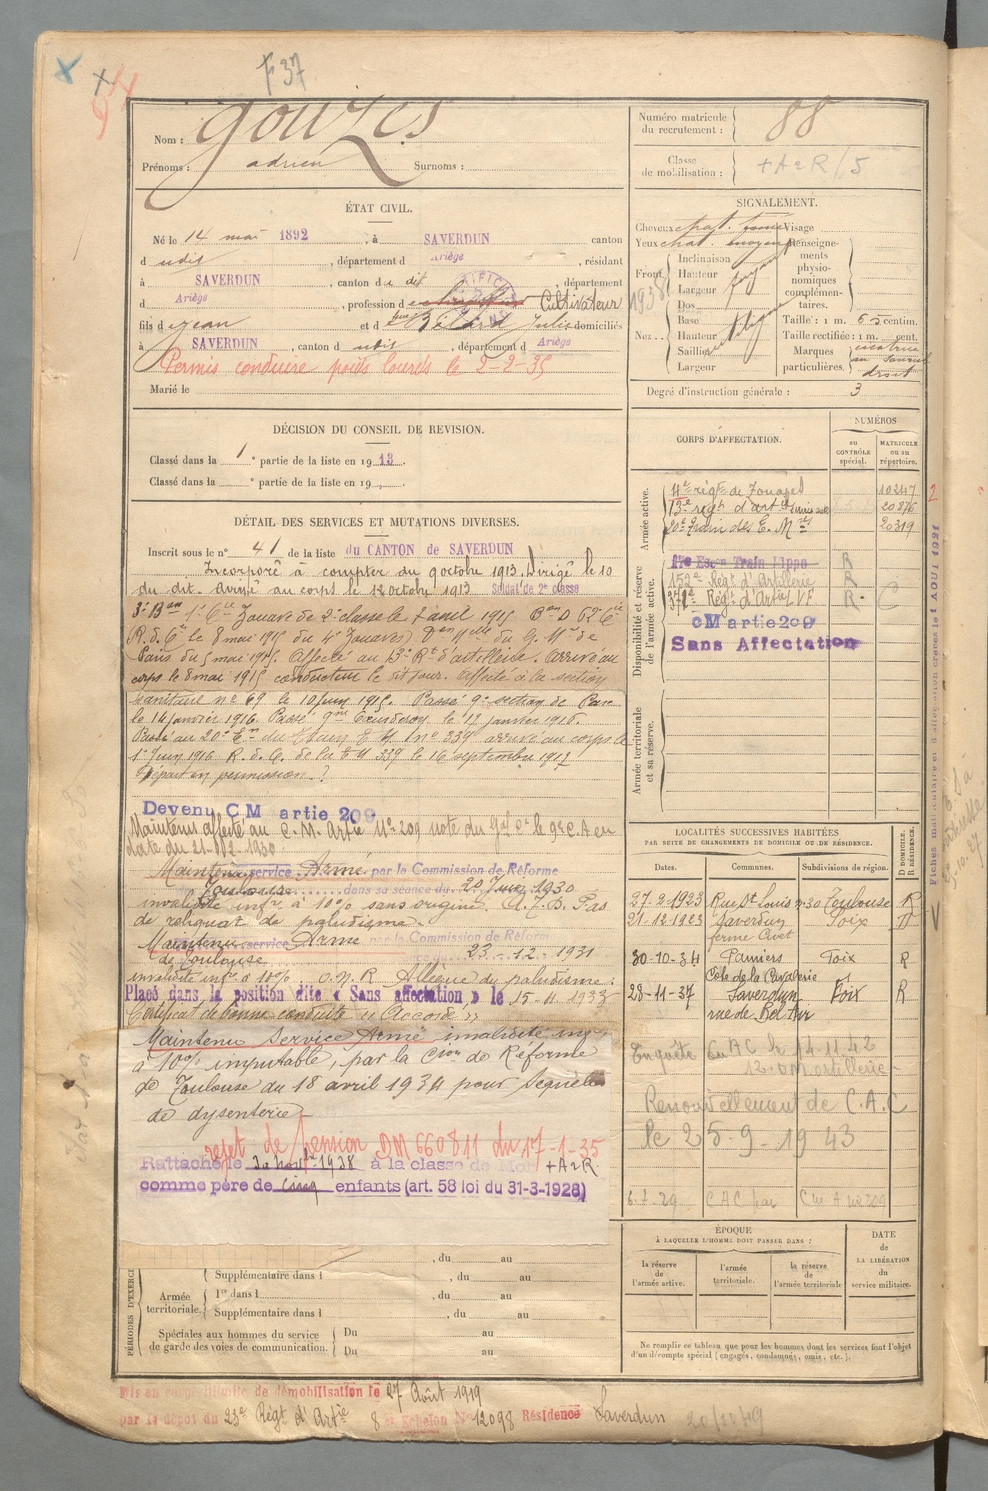 F 37
Nom : Gouzes
Prénoms : adrien Surnoms :
ÉTAT CIVIL.
Né le 14 mai 1892, à SAVERDUN canton
d udit, département d Ariège, résidant
à SAVERDUN, canton du dit, département
d Ariège, profession de Cultivateur
fils de Jean et de Bélard Julie domiciliés
à SAVERDUN, canton d udit, département d Ariège
Permis conduire poids lourds le 2-2-35
Marié le
DÉCISION DU CONSEIL DE REVISION.
Classé dans la 1e partie de la liste en 1913.
Classé dans la e partie de la liste en 19 .
DÉTAIL DES SERVICES ET MUTATIONS DIVERSES.
Inscrit sous le n° 41 de la liste du CANTON de SAVERDUN
Incorporé à compter du 9 octobre 1913. Dirigé le 10
du dit. arrivé au corps le 12 octobre 1913 Soldat de 2e classe
3e Bon 1e Cie Zouave de 2e classe le 7 avril 1915 Bon D 62e Cie
R. d. C. le 8 mai 1915 du 4e Zouaves) Don du G. Mre de
Paris du 5 mai 1915. Affecté au 13e Rt d'artillerie. Arrivé au
corps le 8 mai 1915 conducteur le dit jour. Affecté à la section
sanitaire n° 69 le 10 juin 1915. Passé 9e section de Parc
le 14 janvier 1916. Passé le 19 janvier 1916.
Passé au 20e En du Train T M n° 339 arrivé au corps le
1er Juin 1916 R. d. C. de la T M 339 le 16 septembre 1917
Départ en permission ?
Devenu C M artie 209
Maintenu affecté au C. M. Artie N° 209 note du Gal Ct le 9e C.A en
date du 21-1930
Maintenu service Armé par la Commission de Réforme
Toulouse dans sa séance du 20 Juin 1930
invalidité infre à 10% sans origine. Pas
de reliquat de paludisme.
Maintenu service Armé par la Commission de Réform
de Toulouse 23-12-1931
invalidité infre à 10% o.n.R Allègue du paludisme.
Placé dans la position dite « Sans affectation » le 15-11-1933
Certificat de bonne conduite "Accordé"
Maintenu Service Armé invalidité infre
à 10% imputable, par la Cion de Réforme
de Toulouse du 18 avril 1934 pour séquelle
de dysenterie
rejet de pension DM 660811 du 17-1-35
Rattaché le 30 novbre 1938 à la classe de Mob + A2R
comme père de cinq enfants (art. 58 loi du 31-3-1928)
, du au
Supplémentaire dans l , du au
PÉRIODES D'EXERCI
Armée territoriale.
1re dans l , du au
Supplémentaire dans l , du au
Spéciales aux hommes du service
de garde des voies de communication.
Du au
Du au
Numéro matricule du recrutement : 88
Classe de mobilisation : + A2R/5
SIGNALEMENT.
Cheveux chat. foncé Visage
Yeux chat moyen
Renseignements physionomiques complémentaires.
Front
Inclinaison
Hauteur
Largeur
moyen
1938
Nez
Dos
Base
Hauteur
Saillie
Largeur
Taille : 1 m. 65 centim.
Taille rectifiée : 1 m. cent.
Marques particulières.
cicatrice
au sourcil
droit
Degré d'instruction générale : 3
CORPS D'AFFECTATION.
NUMÉROS
au CONTRÔLE spécial.
MATRICULE ou au répertoire.
Armée active.
4e régt de Zouaves 10247
13e régt d'artie 20876
20e Train des E. Mre 20319
Disponibilité et réserve de l'armée active.
Train Hippo R
152e Régt d'Artillerie R
Régt d'Artie L V F R C
CM artie 209
Sans Affectation
Armée territoriale et sa réserve.
LOCALITÉS SUCCESSIVES HABITÉES
PAR SUITE DE CHANGEMENTS DE DOMICILE OU DE RÉSIDENCE.
Dates. Communes. Subdivisions de région. D DOMICILE. R RÉSIDENCE.
27-2-1923 Rue St Louis n° 30 Toulouse R
21-12-1923 Saverdun Foix D
ferme Civet
30-10-34 Pamiers Foix R
Côte de la Cavalerie
28-11-37 Saverdun Foix R
rue de Bel Air
Enquête CAC le 14-11-42
artillerie
Renouvellement de C.A.C
le 25-9-1943
6.7-29 CAC par Cme A n° 209
ÉPOQUE
À LAQUELLE L'HOMME DOIT PASSER DANS :
la réserve de l'armée active.
l'armée territoriale.
la réserve de l'armée territoriale
DATE de LA LIBÉRATION du service militaire.
Ne remplir ce tableau que pour les hommes dont les services font l'objet
d'un décompte spécial (engagés, condamnés, omis, etc.).
Fiches matriculaire et d'affectation créées le 1 AOUT 1921
Mis en congé illimité de démobilisation le 27 Août 1919
par le dépôt du 23e Régt d'Artie 8e Echelon N° 12098 Résidence Saverdun